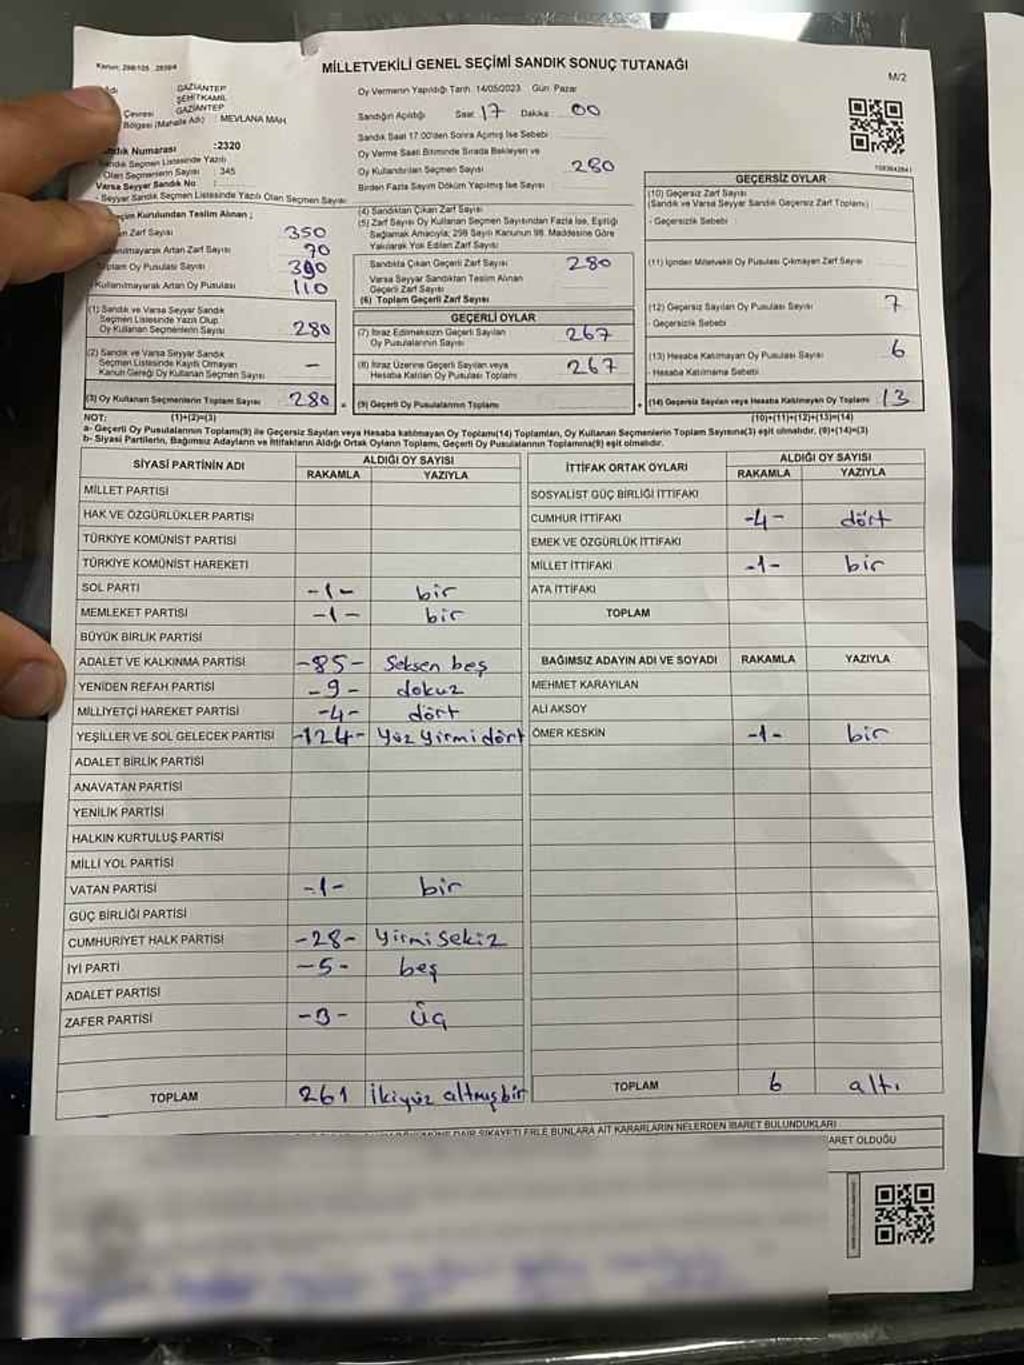 Kanun: 298/105 2839/4
MİLLETVEKİLİ GENEL SEÇİMİ SANDIK SONUÇ TUTANAĞI
M/2
GAZİANTEP
ŞEHİTKAMİL
Çevresi GAZİANTEP
Bölgesi (Mahalle Adı) : MEVLANA MAH.
Numarası :2320
Sandık Seçmen Listesinde Yazılı
Olan Seçmenlerin Sayısı : 345
Varsa Seyyar Sandık No :
- Seyyar Sandık Seçmen Listesinde Yazılı Olan Seçmen Sayısı
Oy Vermenin Yapıldığı Tarih 14/05/2023 Gün Pazar
Sandığın Açıldığı Saat 17 Dakika 00
Sandık Saat 17.00'den Sonra Açılmış İse Sebebi
Oy Verme Saati Bitiminde Sırada Bekleyen ve
Oy Kullandırılan Seçmen Sayısı 280
Birden Fazla Sayım Döküm Yapılmış İse Sayısı
Seçim Kurulundan Teslim Alınan ;
Zarf Sayısı 350
Artan Zarf Sayısı 70
Toplam Oy Pusulası Sayısı 390
Kullanılmayarak Artan Oy Pusulası 110
(1) Sandık ve Varsa Seyyar Sandık
Seçmen Listesinde Yazılı Olup
Oy Kullanan Seçmenlerin Sayısı 280
(2) Sandık ve Varsa Seyyar Sandık
Seçmen Listesinde Kayıtlı Olmayan
Kanun Gereği Oy Kullanan Seçmen Sayısı –
(3) Oy Kullanan Seçmenlerin Toplam Sayısı 280 =
(4) Sandıktan Çıkan Zarf Sayısı
(5) Zarf Sayısı Oy Kullanan Seçmen Sayısından Fazla İse, Eşitliği
Sağlamak Amacıyla; 298 Sayılı Kanunun 98. Maddesine Göre
Yakılarak Yok Edilen Zarf Sayısı
Sandıkta Çıkan Geçerli Zarf Sayısı 280
Varsa Seyyar Sandıktan Teslim Alınan
Geçerli Zarf Sayısı
(6) Toplam Geçerli Zarf Sayısı
GEÇERLİ OYLAR
(7) İtiraz Edilmeksizin Geçerli Sayılan
Oy Pusulalarının Sayısı 267
(8) İtiraz Üzerine Geçerli Sayılan veya
Hesaba Katılan Oy Pusulası Toplamı 267
(9) Geçerli Oy Pusulalarının Toplamı +
GEÇERSİZ OYLAR
(10) Geçersiz Zarf Sayısı
(Sandık ve Varsa Seyyar Sandık Geçersiz Zarf Toplamı)
- Geçersizlik Sebebi
(11) İçinden Milletvekili Oy Pusulası Çıkmayan Zarf Sayısı
(12) Geçersiz Sayılan Oy Pusulası Sayısı 7
- Geçersizlik Sebebi
(13) Hesaba Katılmayan Oy Pusulası Sayısı 6
- Hesaba Katılmama Sebebi
(14) Geçersiz Sayılan veya Hesaba Katılmayan Oy Toplamı 13
NOT: (1)+(2)=(3) (10)+(11)+(12)+(13)=(14)
a- Geçerli Oy Pusulalarının Toplamı(9) ile Geçersiz Sayılan veya Hesaba katılmayan Oy Toplamı(14) Toplamları, Oy Kullanan Seçmenlerin Toplam Sayısına(3) eşit olmalıdır. (9)+(14)=(3)
b- Siyasi Partilerin, Bağımsız Adayların ve İttifakların Aldığı Ortak Oyların Toplamı, Geçerli Oy Pusulalarının Toplamına(9) eşit olmalıdır.
SİYASİ PARTİNİN ADI ALDIĞI OY SAYISI
RAKAMLA YAZIYLA
MİLLET PARTİSİ
HAK VE ÖZGÜRLÜKLER PARTİSİ
TÜRKİYE KOMÜNİST PARTİSİ
TÜRKİYE KOMÜNİST HAREKETİ
SOL PARTİ -1- bir
MEMLEKET PARTİSİ -1- bir
BÜYÜK BİRLİK PARTİSİ
ADALET VE KALKINMA PARTİSİ -85- Seksen beş
YENİDEN REFAH PARTİSİ -9- dokuz
MİLLİYETÇİ HAREKET PARTİSİ -4- dört
YEŞİLLER VE SOL GELECEK PARTİSİ -124- Yüz yirmi dört
ADALET BİRLİK PARTİSİ
ANAVATAN PARTİSİ
YENİLİK PARTİSİ
HALKIN KURTULUŞ PARTİSİ
MİLLİ YOL PARTİSİ
VATAN PARTİSİ -1- bir
GÜÇ BİRLİĞİ PARTİSİ
CUMHURİYET HALK PARTİSİ -28- Yirmi sekiz
İYİ PARTİ -5- beş
ADALET PARTİSİ
ZAFER PARTİSİ -3- Üç
TOPLAM 261 İkiyüz altmış bir
İTTİFAK ORTAK OYLARI ALDIĞI OY SAYISI
RAKAMLA YAZIYLA
SOSYALİST GÜÇ BİRLİĞİ İTTİFAKI
CUMHUR İTTİFAKI -4- dört
EMEK VE ÖZGÜRLÜK İTTİFAKI
MİLLET İTTİFAKI -1- bir
ATA İTTİFAKI
TOPLAM
BAĞIMSIZ ADAYIN ADI VE SOYADI RAKAMLA YAZIYLA
MEHMET KARAYILAN
ALİ AKSOY
ÖMER KESKİN -1- bir
TOPLAM 6 altı
DAİR ŞİKAYETLERLE BUNLARA AİT KARARLARIN NELERDEN İBARET BULUNDUKLARI
OLDUĞU